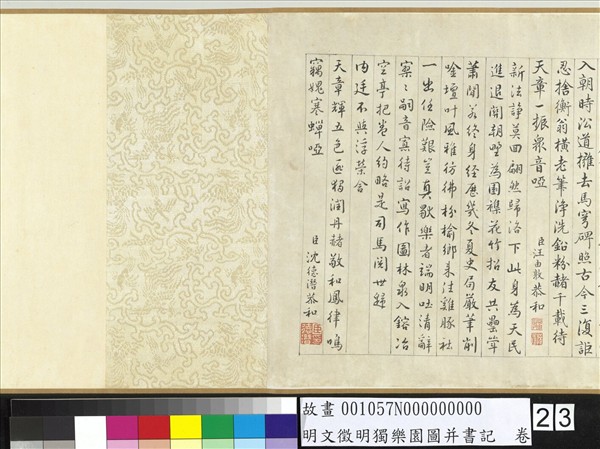 入朝時㳂道擁去馬穹碑照古今三復詎
忍捨衡翁橫老筆淨洗鉛粉赭千載待
天章一振眾音啞 臣汪由敦恭和
新法諍莫回翩然歸洛下此身為天民
進退關朝野為園襍花竹招友共罍斝
蕭閒若終身經歷幾冬夏史局嚴筆削
唫壇叶風雅彷彿枌榆鄉来往雞豚社
一出任險艱豈真歇樂者端明吐清辭
寥〻嗣音寡待詔寫作圖林泉入鎔冶
空亭把卷人約略是司馬閱世歸
內廷不與浮榮舍
天章輝五色匪獨潤丹赭敬和鳳律鳴
竊媿寒蟬啞 臣沈德潛恭和
故畫 001057N000000000
明文徵明獨樂園圖并書記 卷
23